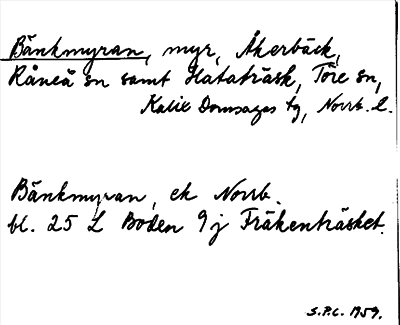 Bänkmyran, myr, Åkerbäck,
Råneå sn samt Hataträsk, Töre sn,
Kalix Domsagas tg, Norrb. l.
Bänkmyran, ek Norrb.
bl. 25 L Boden 9 j Fräkenträsket.
S.P.L. 1959.